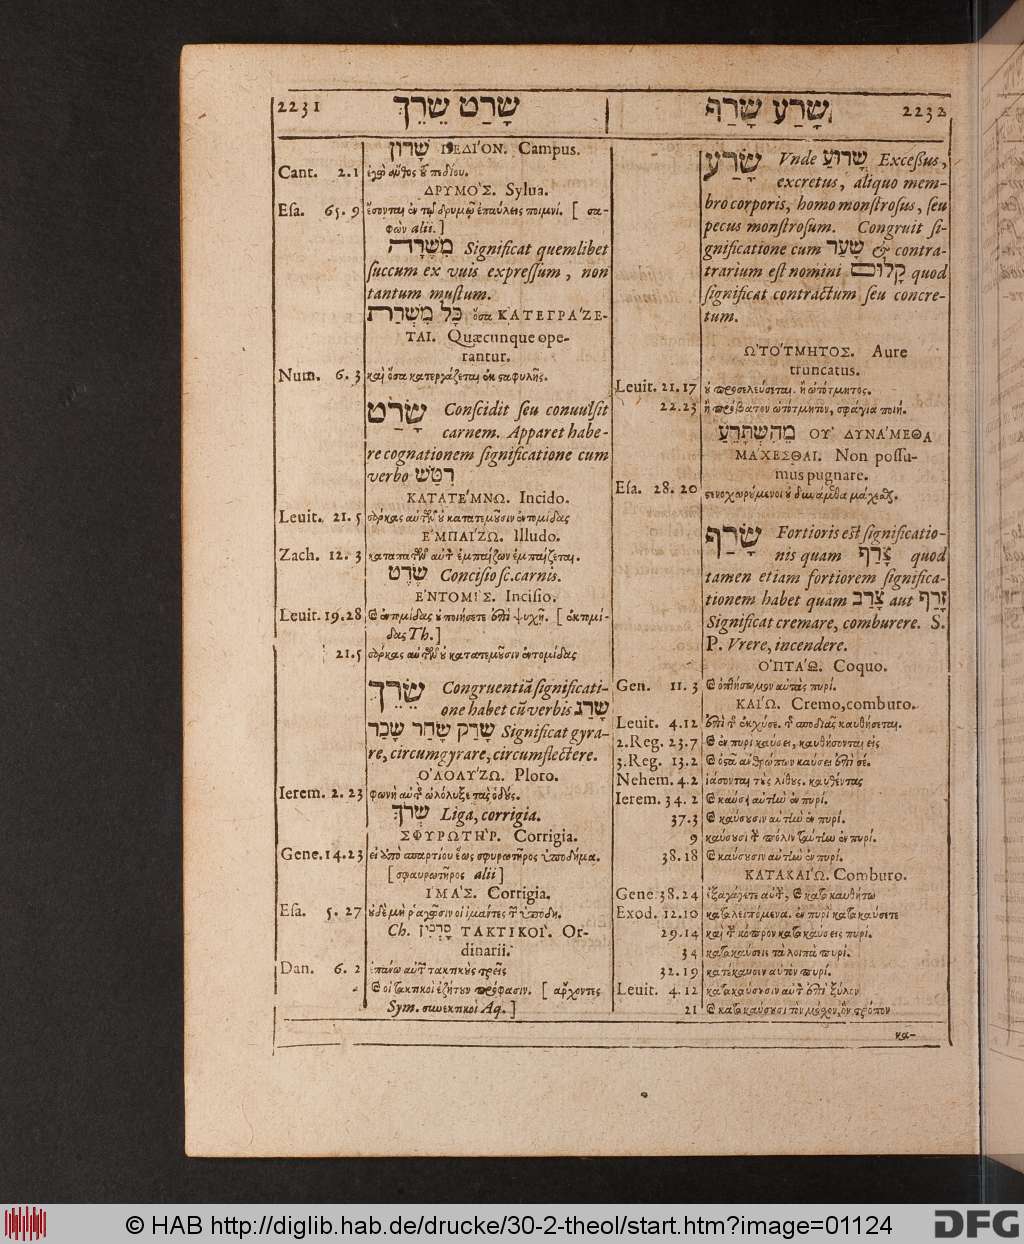 2231 שָׂרַט שֵׂרֵךְ
שָׂרַע שָׂרַף 2232
שָׁרוֹן ΠΕΔΙ'ΟΝ. Campus.
Cant. 2.1 πεδίου.
ΔΡΥΜΟ'Σ. Sylua.
Esa. 65. 9 ἔσονται ἐν τῷ δρυμῷ ἐπαύλεις ποιμνί. [ σα-
φὼν alii. ]
מִשְׁרָה Significat quemlibet
succum ex vuis expressum, non
tantum mustum.
כָּל מִשְׁרַת ὅσα ΚΑΤΕΓΡΑ'ΖΕ-
ΤΑΙ. Quæcunque ope-
rantur.
Num. 6. 3 καὶ ὅσα κατεργάζεται ἐκ σαφυλῆς.
שָׂרַט Conscidit seu conuulsit
carnem. Apparet habe-
re cognationem significatione cum
verbo רִטַּשׁ
ΚΑΤΑΤΕ'ΜΝΩ. Incido.
Leuit. 21. 5 κατατεμοῦσιν ἐντομίδας
Ε'ΜΠΑΙ'ΖΩ. Illudo.
Zach. 12. 3 ἐμπαίζων ἐμπαίζεται.
שֶׂרֶט Concisio sc. carnis.
Ε'ΝΤΟΜΙ'Σ. Incisio.
Leuit. 19.28 ποιήσετε ψυχῇ. [ ἐκτομί-
δας Th. ]
21.5 κατατεμοῦσιν ἐντομίδας
שֵׂרֵךְ Congruentiā significati-
one habet cū verbis שָׂרַג
שָׂרַק שָׂחַר שָׂכַר Significat gyra-
re, circumgyrare, circumflectere.
Ο'ΛΟΛΥ'ΖΩ. Ploro.
Ierem. 2. 23 φωνὴ ὠλόλυξε τὰς ὁδούς.
שְׂרֹךְ Liga, corrigia.
ΣΦΥΡΩΤΗ'Ρ. Corrigia.
Gene. 14.23 εἰ ἀπὸ σπαρτίου ἕως σφυρωτῆρος ὑποδήμα.
[ σφαυρωτῆρος alii ]
Ι'ΜΑ'Σ. Corrigia.
Esa. 5. 27 οὐδὲ μὴ ῥαγῶσιν οἱ ἱμάντες ὑποδη.
Ch. סָרְכִין ΤΑΚΤΙΚΟΙ'. Or-
dinarii.
Dan. 6. 2 ἐπάνω τακτικοὺς τρεῖς
οἱ τακτικοὶ ἐζήτουν πρόφασιν. [ ἄρχοντες
Sym. συνεκτικοὶ Aq. ]
שָׂרַע Vnde שָׂרוּעַ Excessus,
excretus, aliquo mem-
bro corporis, homo monstrosus, seu
pecus monstrosum. Congruit si-
gnificatione cum שָׂעַר & contra-
trarium est nomini קָלוּט quod
significat contractum seu concre-
tum.
Ω'ΤΟ'ΤΜΗΤΟΣ. Aure
truncatus.
Leuit. 21.17 οὐ προσελεύσεται. ἢ ὠτότμητος.
22.23 ἢ πρόβατον ὠτότμητον, σφάγια ποιή.
מֵהִשְׂתָּרֵעַ ΟΥ' ΔΥΝΑ'ΜΕΘΑ
ΜΑ'ΧΕΣΘΑΙ. Non possu-
mus pugnare.
Esa. 28. 20 στενοχωρούμενοι οὐ δυνάμεθα μάχεσθαι.
שָׂרַף Fortioris est significatio-
nis quam צָרַף quod
tamen etiam fortiorem significa-
tionem habet quam צָרַב aut זָרַף
Significat cremare, comburere. S.
P. Vrere, incendere.
Ο'ΠΤΑ'Ω. Coquo.
Gen. 11. 3 ὀπτήσωμεν αὐτὰς πυρί.
ΚΑΙ'Ω. Cremo, comburo.
Leuit. 4.12 καυθήσεται.
2. Reg. 23.7 ἐν πυρὶ καύσει, καυθήσονται εἰς
3. Reg. 13.2 ὀστᾶ ἀνθρώπων καύσει ἐπὶ σέ.
Nehem. 4.2 ἰάσονται τοὺς λίθους. καυθέντας
Ierem. 34. 2 καύσει αὐτὴν ἐν πυρί.
37.3 καύσουσιν αὐτὴν ἐν πυρί.
9 καύσουσι πόλιν ταύτην ἐν πυρί.
38.18 καύσουσιν αὐτὴν ἐν πυρί.
ΚΑΤΑΚΑΙ'Ω. Comburo.
Gene. 38.24 ἐξαγάγετε κατακαυθήτω
Exod. 12.10 καταλειπόμενα. ἐν πυρὶ κατακαύσετε
29.14 καὶ κόπρον κατακαύσεις πυρί.
34 κατακαύσεις τὰ λοιπὰ πυρί.
32.19 κατέκαυσεν αὐτὸν πυρί.
Leuit. 4.12 κατακαύσουσιν ἐπὶ ξύλων
21 κατακαύσουσι τὸν μόσχον, ὃν τρόπον
κα-
© HAB http://diglib.hab.de/drucke/30-2-theol/start.htm?image=01124
DFG